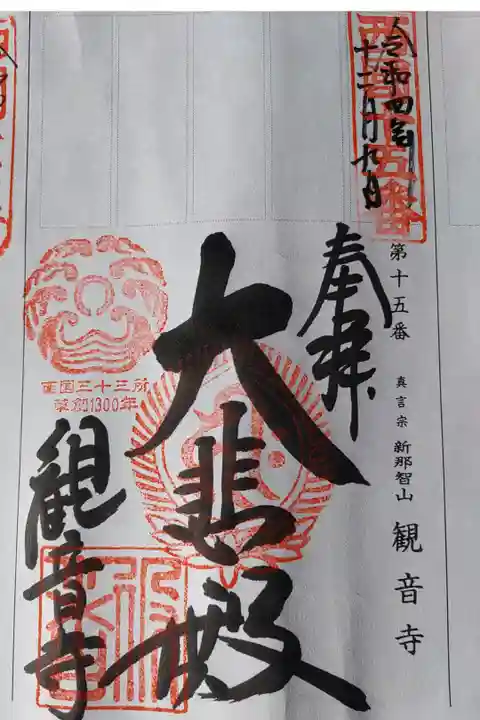 令和四年
十二月九日
西国十五番
奉拝
第十五番
真言宗 新那智山 観音寺
大悲殿
西国三十三所
草創1300年
観音寺